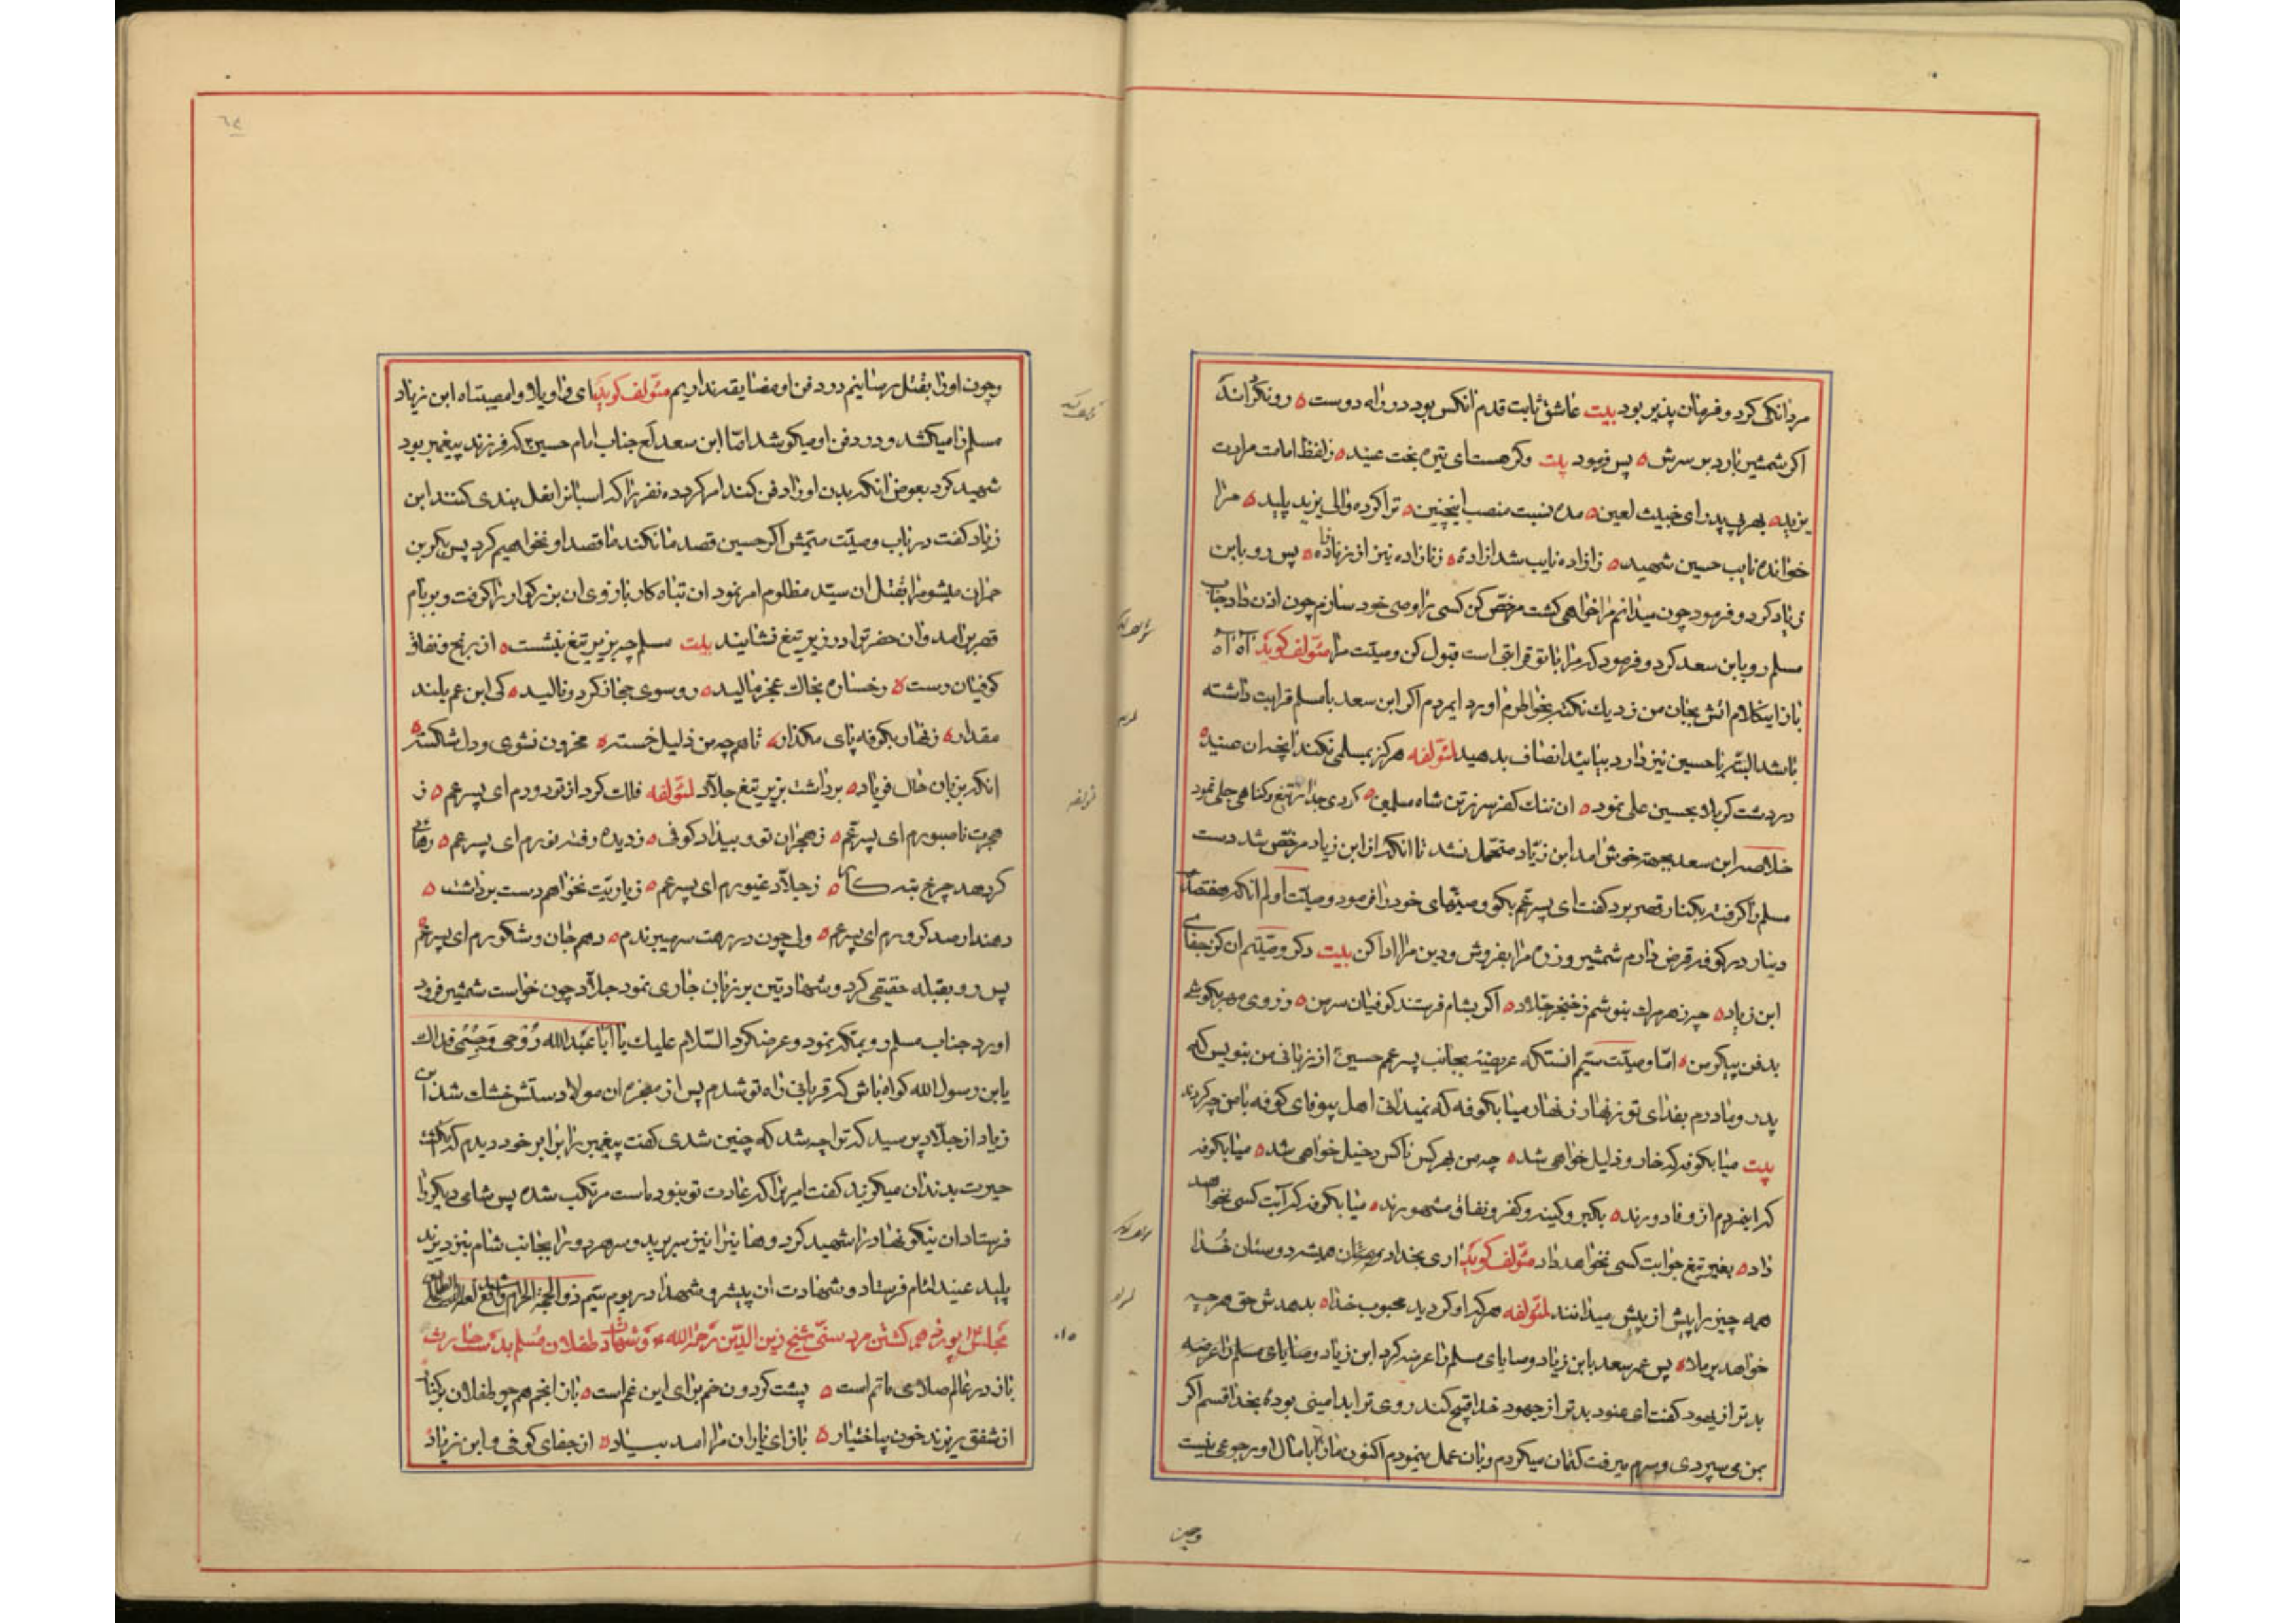 مردانکی کرد و فرمان پذیر بود بیت عاشق ثابت قدم انکس بود در راه دوست ه رو نکرداند
اکر شمشیر بارد بر سرش ه پس فرمود بیت وکر هست ای تیره بخت عنید ه ز لفظ امامت مرادت
یزید ه بهر بی پدر ای خبیث لعین ه مده نسبت منصب اینچنین ه ترا کرده والی یزید پلید ه مرا
خوانده نایب حسین شهید ه زازاده نایب شد ازاده ه زنازاده نیز از زنازاده ه پس رو بابن
زیاد کرد و فرمود چون میدانم مرا خواهی کشت مرخص کن کسی را وصی خود سازم چون اذن داد جناب
مسلم رو بابن سعد کرد و فرمود که مرا با تو قرابتی است قبول کن وصیت مرا مئولف کوید اه اه
باز اینکلام اتش بجان من زد یك نکته بخاطرم اورد ایمردم اکر ابن سعد با مسلم قرابت داشته
باشد البته با حسین نیز دارد بیائید انصاف بدهید لمئولفه هرکز بمسلمی نکند انچه ان عنید
در دشت کربلا بحسین علی نمود ه ان ننك کفر سر ز تن شاه مسلمین ه کردی جدا بتیغ و کناهی جلی نمود
خلاصه ابن سعد بجهة خوش امد ابن زیاد متحمل نشد تا انکه از ابن زیاد مرخص شد دست
مسلم را کرفته بکنار قصر برد کفت ای پسر عم بکو وصیتهای خود را فرمود وصیت اولم انکه هفتصد
دینار در کوفه قرض دارم شمشیر و زره مرا بفروش و دین مرا ادا کن بیت دکر وصیتم ان کز جفای
ابن زیاد ه چو زهر مرك بنوشم ز خنجر جلاد ه اکر بشام فرستند کوفیان سر من ه ز روی مهر بکوشی
بدفن پیکر من ه امّا وصیّت سیّم انستکه عریضه بجانب پسر عم حسین ع از زبانی من بنویس که
پدر و مادرم بفدای تو زنهار زنهار میا بکوفه که نمیدانی اهل بیوفای کوفه با من چه کردند
بیت میا بکوفه که خار و ذلیل خواهی شد ه چه من بهر کس ناکس دخیل خواهی شد ه میا بکوفه
که اینمردم از وفا دورند ه بکبر و کینه و کفر و نفاق مشهورند ه میا بکوفه که آبت کسی نخواهد
داد ه بغیر تیغ جوابت کسی نخواهد داد مئولف کوید اری بخدا درویشان همیشه دوستان خدا
همه چیز را پیش از پیش میدانند لمئولفه هرکه او کردید محبوب خدا ه بدهدش حق هر چه
خواهد بر ملا ه پس عمر سعد با ابن زیاد وصایای مسلم را عرضه کرد ابن زیاد وصایای مسلم را عرضه
بدتر از یهود کفت ای عنود بدتر از جهود خدا قبیح کند روی ترا بد امینی بودۀ بخدا قسم اکر
بمن می سپردی و سرم میرفت کتمان میکردم و بان عمل مینمودم اکنون مارا با مال او رجوعی نیست
وچون
وچون اورا بقتل رسانیم در دفن او مضایقه نداریم مئولف کوید ای واویلا و امصیبتاه ابن زیاد
مسلم را میکشد و در دفن او میکوشد امّا ابن سعد لع جناب امام حسین ع که فرزند پیغمبر بود
شهید کرد بعوض انکه بدن اورا دفن کنند امر کرد ده نفر را که اسبانرا نعل بندی کنند ابن
زیاد کفت در باب وصیّت سیّمش اکر حسین قصد ما نکند ما قصد او نخواهیم کرد پس بکر بن
حمران میشوم را بقتل ان سیّد مظلوم امر نمود ان تباه کار بازوی ان بزرکوار را کرفت و بر بام
قصر بر امد وان حضرترا در زیر تیغ نشانید بیت مسلم چه بزیر تیغ بنشست ه از رنج و نفاق
کوفیان رست ه رخساره بخاك عجز مالید ه رو سوی حجاز کرد و نالید ه کی ابن عم بلند
مقدار ه زنهار بکوفه پای مکذار ه تا هم چه من ذلیل خسته ه محزون نشوی و دل شکسته ه
انکه بزبان حال فریاد ه برداشت بزیر تیغ جلاد لمئولفه فلك کرد از تو دورم ای پسر عم ه ز
هجرت ناصبورم ای پسر عم ه ز هجران تو و بیداد کوفی ه ز دیده رفته نورم ای پسر عم ه رهائی
کر دهد چرخ تبه کار ه ز جلاد غیورم ای پسر عم ه ز یاریّت نخواهم دست برداشت ه
دهند ار صد کرورم ای پسر عم ه ولی چون در رهت سر میسپردم ه دهم جان و شکورم ای پسر عم ه
پس رو بقبله حقیقی کرد و شهادتین بر زبان جاری نمود جلاد چون خواست شمشیر فرود
اورد جناب مسلم رو بمکه نمود و عرضکرد السّلام علیك یا اَبا عَبدالله رُوحی وَجِسْمی فداك
یابن رسول الله کواه باش که قربانی راه تو شدم پس از معجزه ان مولا دستش خشك شد ابن
زیاد از جلاد پرسید که ترا چه شد که چنین شدی کفت پیغمبر را برابر خود دیدم که انکشت
حیرت بدندان میکزید کفت امریرا که عادت تو نبوده است مرتکب شده پس شامی دیکر را
فرستاد ان نیکو نهاد را شهید کرد و هانیرا نیز سر برید و سر هر دو را بجانب شام بنزد یزید
پلید عنید لئام فرستاد و شهادت ان پیشرو شهدا در یوم سیّم ذوالحجة الحرام واقع شد
مجلس پوزدهم کشتن مرد سنّی شیخ زین الدّین رَحمه الله و شهادت طفلان مُسلم بدست حارث
باز در عالم صلای ماتم است ه پشت کردون خم برای این غم است ه باز انجم هم چو طفلان بر کنار
از شفق ریزند خون بیاختیار ه باز ای یاران مرا امد بیاد ه از جفای کوفی و ابن زیاد